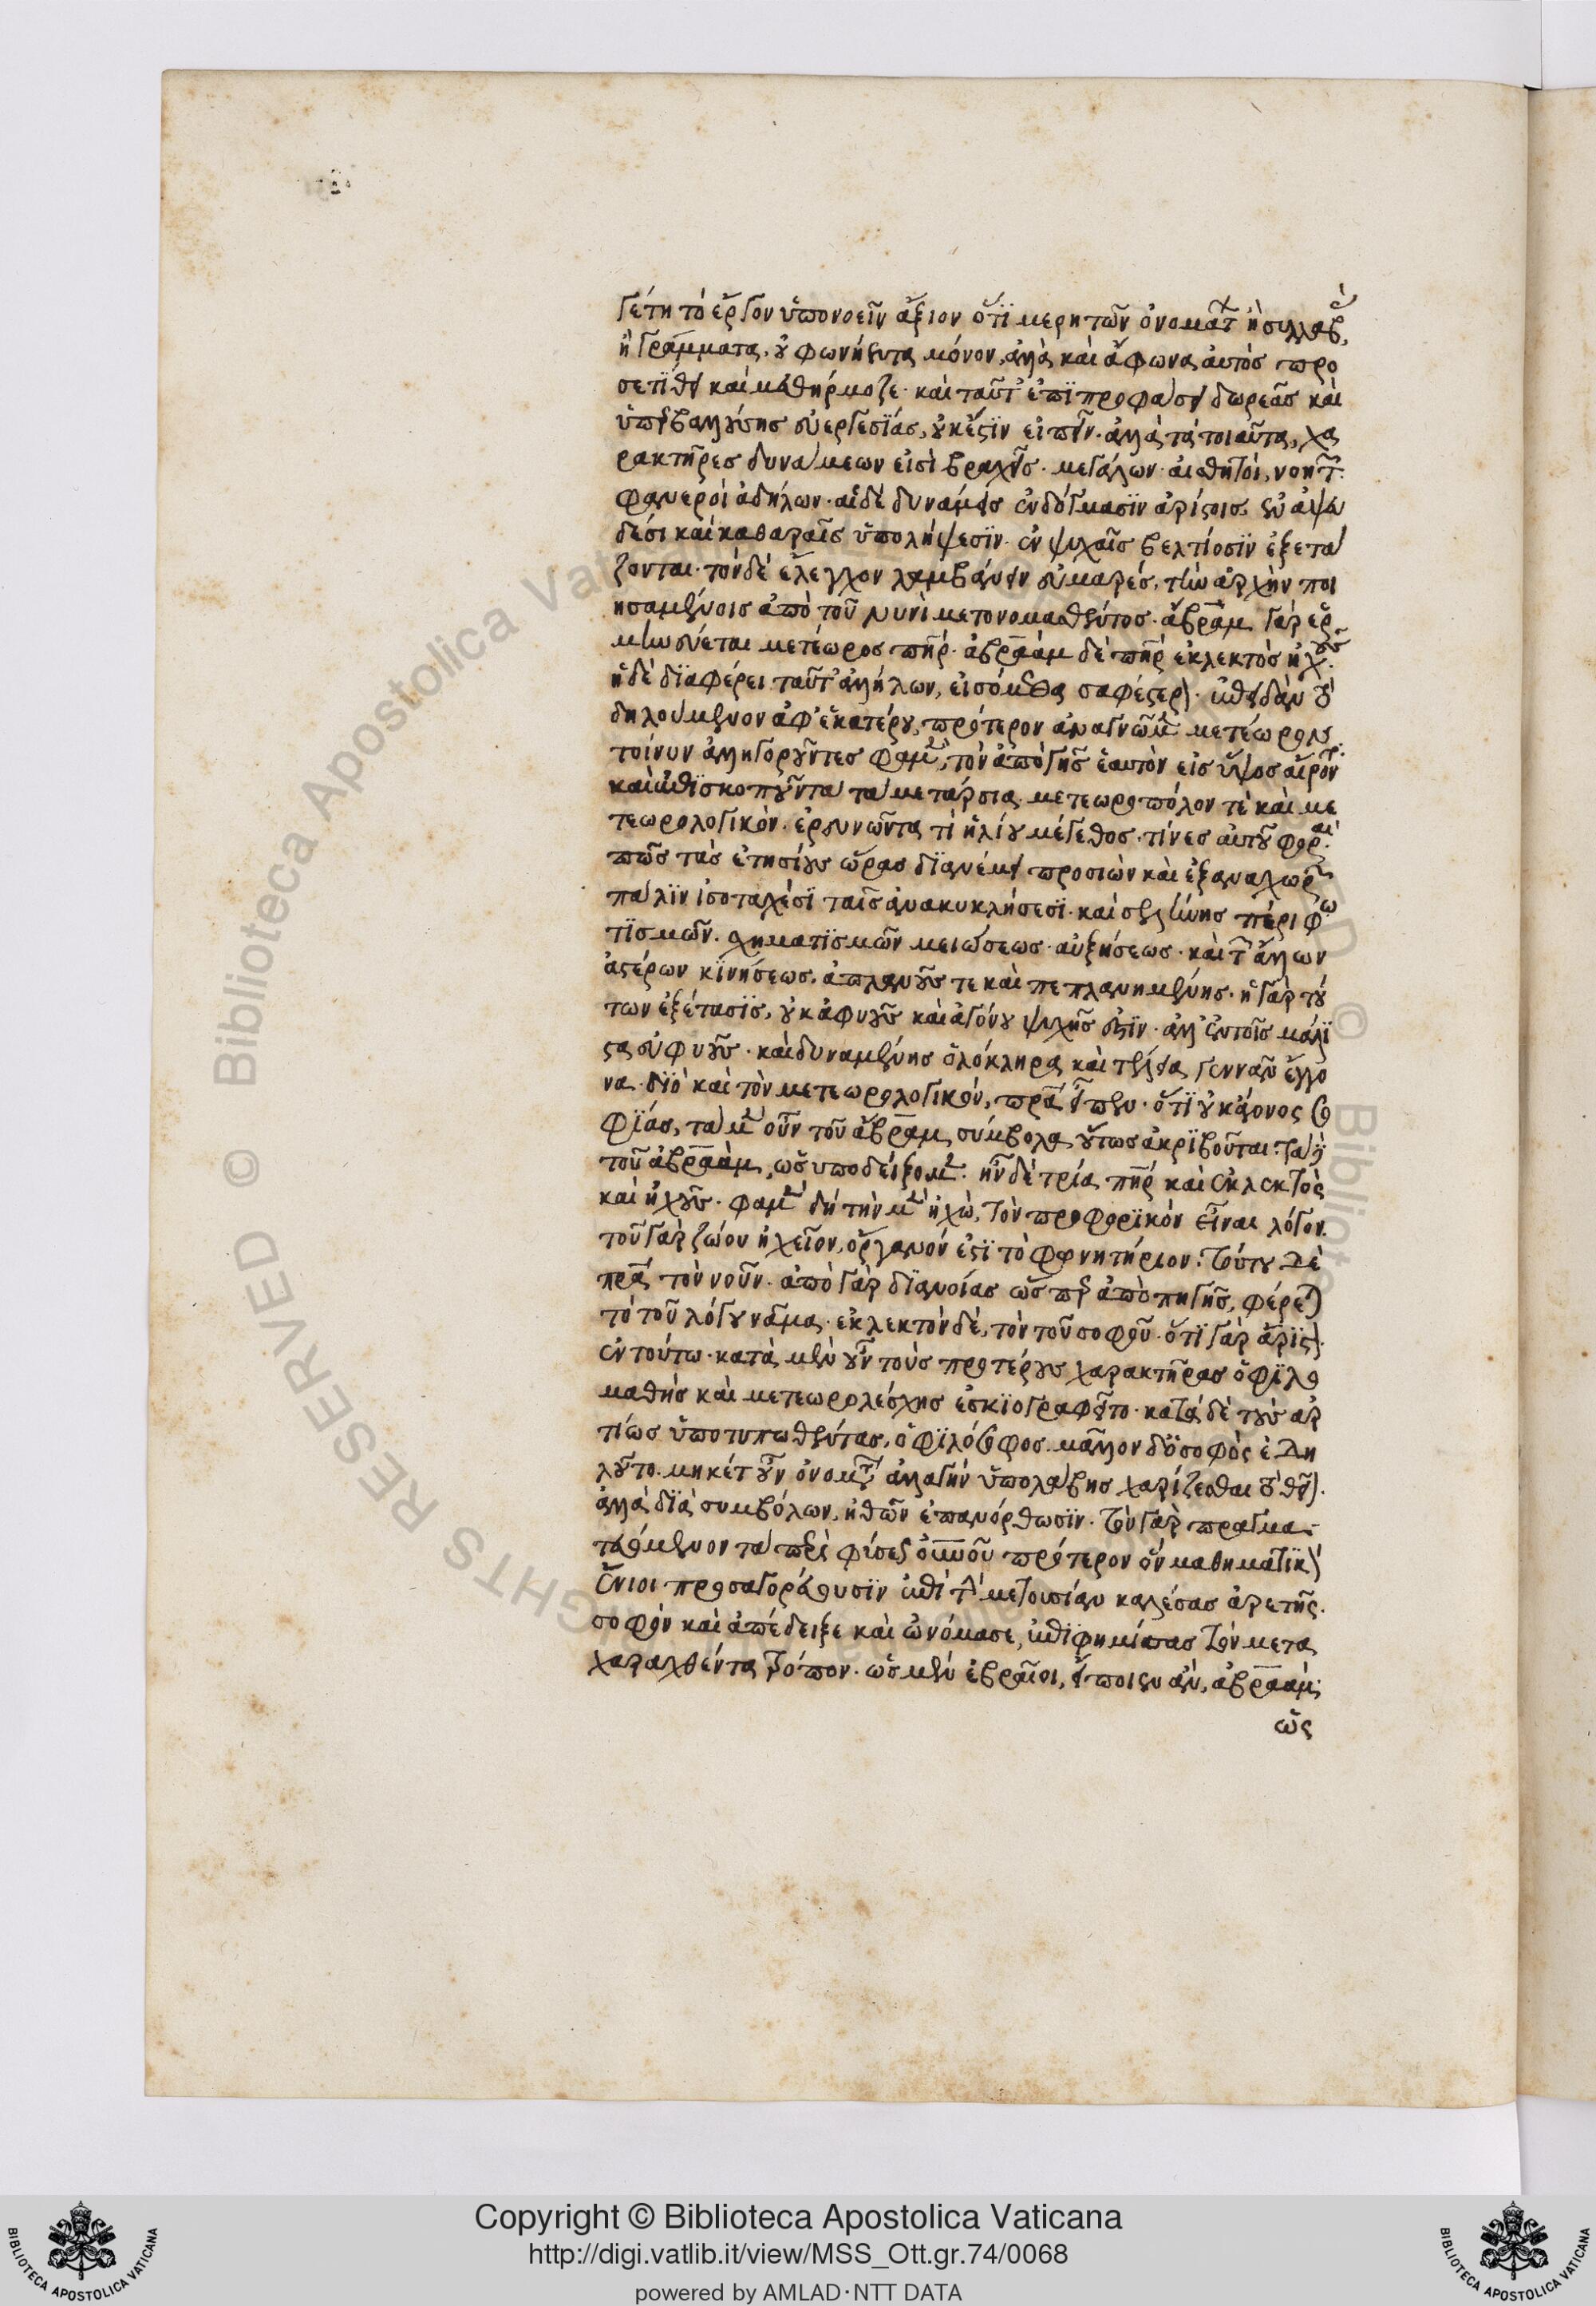 γέτη τὸ ἔργον ὑπονοεῖν ἄξιον ὅτι μέρη τῶν ὀνομάτ ἢ συλλαβὰς
ἢ γράμματα. οὐ φωνήεντα μόνον, ἀλλὰ καὶ ἄφωνα αὐτὸς προ
σετίθει καὶ μεθήρμοζε. καὶ ταῦτ' ἐπὶ προφάσει δωρεᾶς καὶ
ὑπερβαλλούσης εὐεργεσίας, οὐκ ἔστιν εἰπεῖν. ἀλλὰ τὰ τοιαῦτα, χα
ρακτῆρες δυνάμεων εἰσὶ βραχεῖς. μεγάλων. αἰσθητοὶ, νοητ.
φανεροὶ ἀδήλων. αἱ δὲ δυνάμεις ἐν δόγμασιν ἀρίστοις. ἐν ἀψευ
δέσι καὶ καθαραῖς ὑπολήψεσιν. ἐν ψυχαῖς βελτίοσιν ἐξετά
ζονται. τὸν δὲ ἔλεγχον λαμβάνειν εὐμαρές, τὴν ἀρχὴν ποι
ησαμένοις ἀπὸ τοῦ νυνὶ μετονομασθέντος. ἄβραμ γὰρ ἑρ
μηνεύεται μετέωρος πηρ. ἀβραὰμ δὲ πηρ ἐκλεκτὸς ἠχοῦς.
ἡ δὲ διαφέρει ταῦτ' ἀλλήλων, εἰσόμεθα σαφέστερ. ἐπειδὰν τὸ
δηλούμενον ἀφ' ἑκατέρου, πρότερον ἀναγνῶμεν μετέωρον
τοίνυν ἀλληγοροῦντες φαμὲν, τὸν ἀπὸ γῆς ἑαυτὸν εἰς ὕψος αἴροντ.
καὶ ἐπισκοποῦντα τὰ μετάρσια. μετεωροπόλον τὲ καὶ με
τεωρολογικὸν. ἐρευνῶντα τί ἡλίου μέγεθος. τίνες αὐτοῦ φοραί.
πῶς τὰς ἐτησίους ὥρας διανέμει προσιὼν καὶ ἐξαναχωρῶν
πάλιν ἰσοταχέσι ταῖς ἀνακυκλήσεσι. καὶ σελήνης πέρι φω
τισμῶν. σχηματισμῶν μειώσεως. αὐξήσεως. καὶ τ ἄλλων
ἀστέρων κινήσεως. ἀπλανοῦς τε καὶ πεπλανημένης. ἡ γὰρ τού
των ἐξέτασις, οὐκ ἀφυοῦς καὶ ἀγόνου ψυχῆς ἐστιν. ἀλλ' ἐν τοῖς μάλι
στα εὐφυοῦς. καὶ δυναμένης ὁλόκληρα καὶ τέλεια γεννᾶν ἔγγο
να. διὸ καὶ τὸν μετεωρολογικὸν, πρα εἶπεν. ὅτι οὐκ ἄγονος σο
φίας. τὰ μὲν οὖν τοῦ ἄβραμ σύμβολα οὕτως ἀκριβοῦται. τὰ δὲ
τοῦ ἀβραὰμ, ὡς ὑποδείξομεν. ἦν δὲ τρία πηρ καὶ ἐκλεκτὸς
καὶ ἠχοῦς. φαμὲν δὴ τὴν μὲν ἠχὼ, τὸν προφορικὸν εἶναι λόγον.
τοῦ γὰρ ζώου ἠχεῖον, ὄργανόν ἐστι τὸ φωνητήριον. τούτου δὲ
πρα τὸν νοῦν. ἀπὸ γὰρ διανοίας ὥσπερ ἀπὸ πηγῆς, φέρεται
τὸ τοῦ λόγου νᾶμα. ἐκλεκτὸν δὲ, τὸν τοῦ σοφοῦ. ὅτι γὰρ ἄριστ.
ἐν τούτω. κατὰ μὲν οὖν τοὺς προτέρους χαρακτῆρας ὁ φιλο
μαθὴς καὶ μετεωρολέσχης ἐσκιογραφεῖτο. κατὰ δὲ τοὺς ἀρ
τίως ὑποτυπωθέντας, ὁ φιλόσοφος. μᾶλλον δὲ ὁ σοφὸς ἐδη
λοῦτο. μηκέτ' οὖν ὀνομτ ἀλλαγὴν ὑπολάβης χαρίζεσθαι τὸ θεῖ.
ἀλλὰ διὰ συμβόλων, ἠθῶν ἐπανόρθωσιν. τὸν γὰρ πραγμα
τευόμενον τὰ περὶ φύσεως οὐρανοῦ πρότερον ὃν μαθηματικὸν
ἔνιοι προσαγορεύουσιν ἐπὶ τ μετουσίαν καλέσας ἀρετῆς.
σοφὸν καὶ ἀπέδειξε καὶ ὠνόμασε, ἐπιφημίσας τὸν μετα
χαραχθέντα τρόπον. ὡς μὲν ἑβραῖοι, εἴποιεν ἂν, ἀβραάμ.
ὡς
Copyright © Biblioteca Apostolica Vaticana
http://digi.vatlib.it/view/MSS_Ott.gr.74/0068
powered by AMLAD·NTT DATA